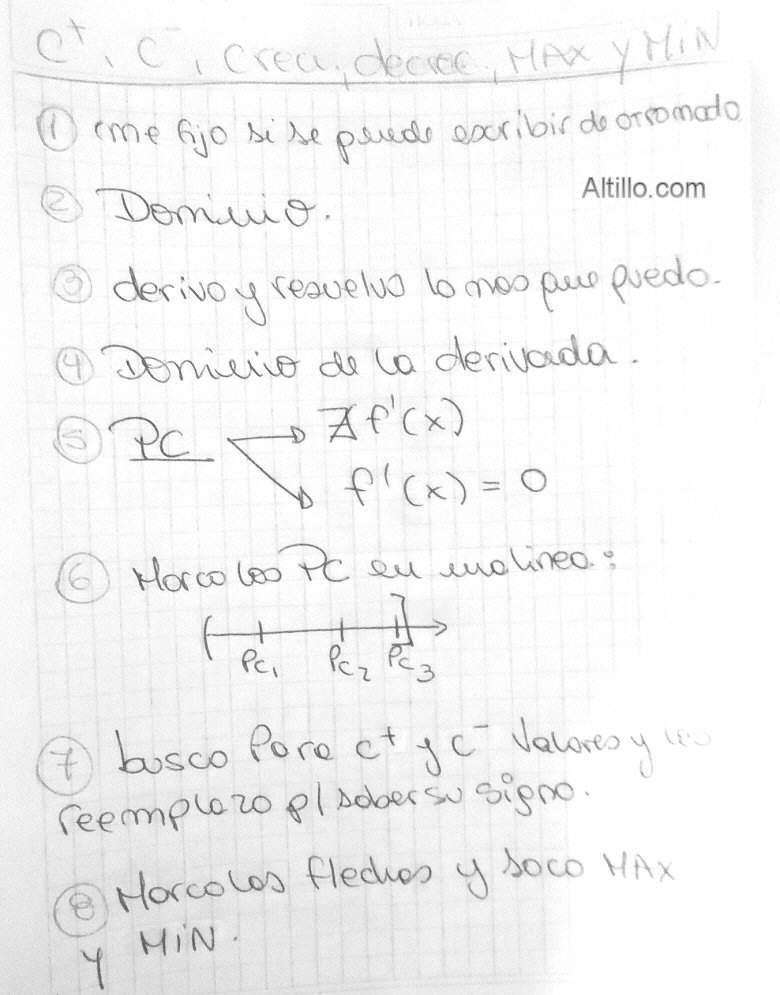 C⁺, C⁻, Crec., decrec., MAX y MiN
① me fijo si se puede escribir de otro modo
Altillo.com
② Dominio.
③ derivo y resuelvo lo mas que puedo.
④ Dominio de la derivada.
⑤ PC → ∄ f'(x)
f'(x) = 0
⑥ Marco los PC en una linea.:
PC₁ PC₂ PC₃
⑦ busco Para C⁺ y C⁻ Valores y
reemplazo p/ saber su signo.
⑧ Marco las flechas y saco MAX
y MiN.